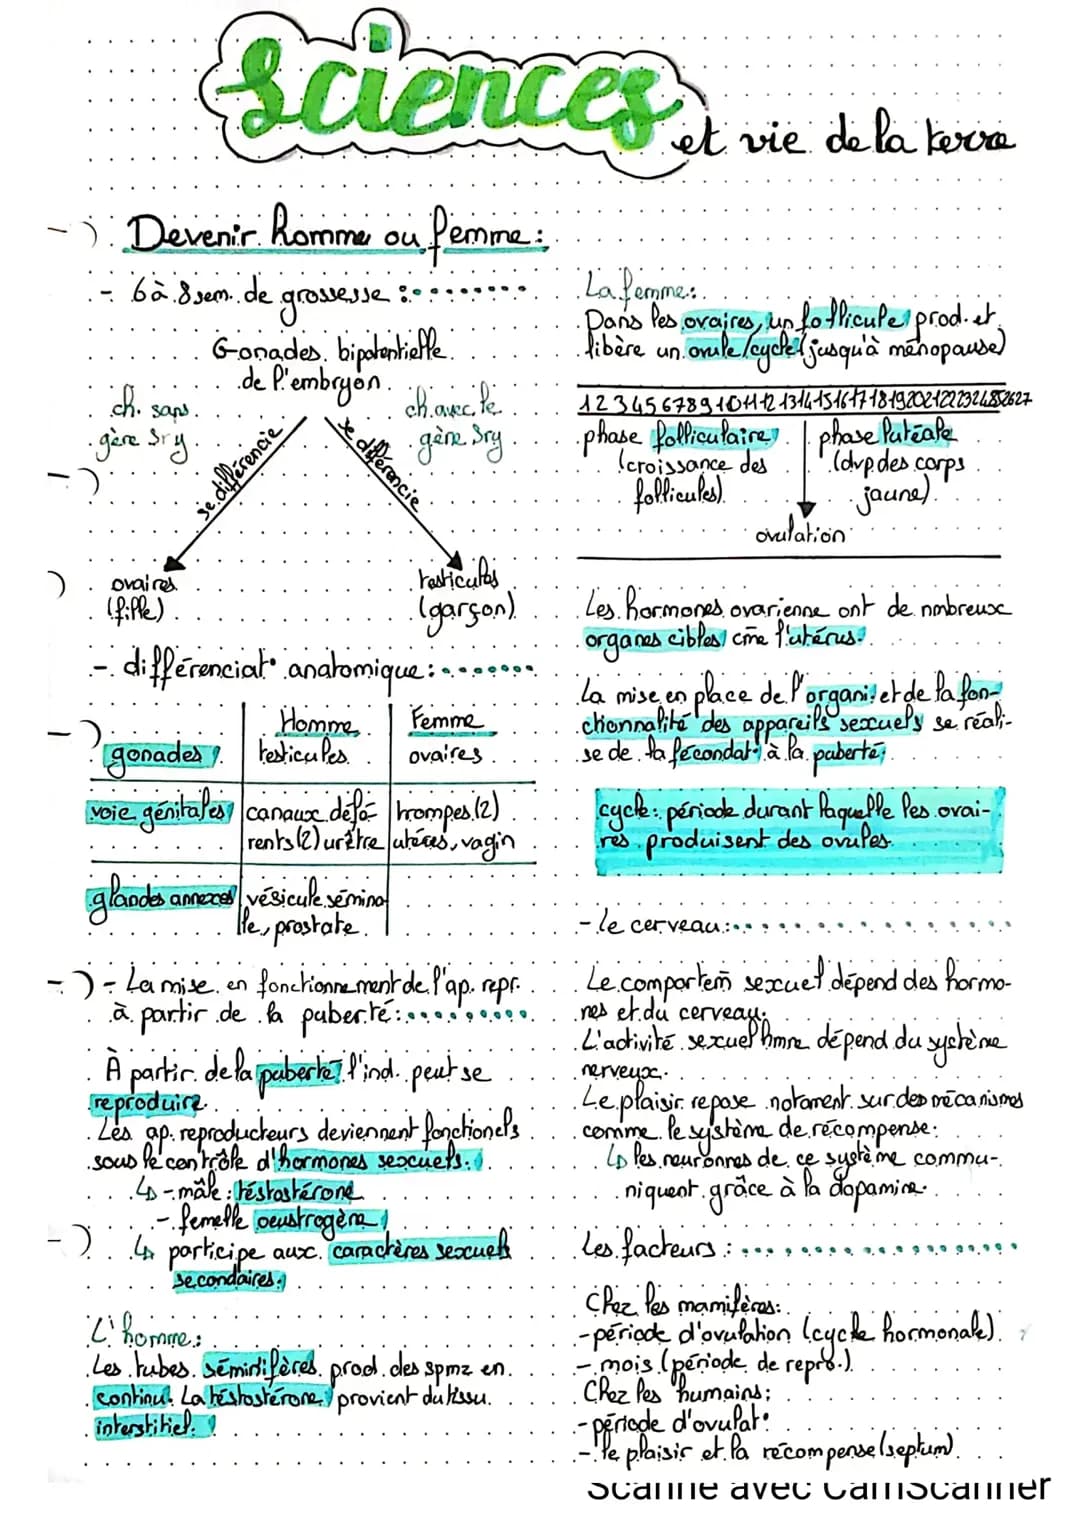 Sciences
et vie de la terre
Devenir homme ou femme :
- 6 à 8 sem. de grossesse :
Gonades bipotentielle
de l'embryon
ch. sans
gère Sry
ch. avec le
gène Sry
se différencie
se différencie
ovaires
(fille)
testicules
(garçon)
- différenciat° anatomique :
Homme
Femme
gonades
testicules
ovaires
voie génitales
canaux défé-
rents (2) urètre
trompes (2)
utérus, vagin
glandes annexes
vésicule sémina
le, prostate.
- La mise en fonctionnement de l'ap. repr.
à partir de la puberté :
À partir de la puberté, l'ind. peut se
reproduire.
Les ap. reproducteurs deviennent fonctionels
sous le contrôle d'hormones sexuels.
↳ - mâle : téstostérone
- femelle oeustrogène
↳ participe aux caractères sexuels
secondaires.
L'homme :
Les tubes séminifères prod. des spmz en
continu. La téstostérone provient du tissu
interstitiel.
La femme :
Dans les ovaires, un follicule prod. et
libère un ovule/cycle (jusqu'à ménopause)
1 2 3 4 5 6 7 8 9 10 11 12 13 14 15 16 17 18 19 20 21 22 23 24 25 26 27
phase folliculaire
(croissance des
follicules)
phase lutéale
(dvp. des corps
jaune)
ovulation
Les hormones ovarienne ont de nmbreux
organes cibles cme l'utérus.
La mise en place de l'organi. et de la fon-
ctionnalité des appareils sexuels se réali-
se de la fécondat° à la puberté,
cycle : période durant laquelle les ovai-
res produisent des ovules.
- le cerveau :
Le comportem sexuel dépend des hormo-
nes et du cerveau.
L'activité sexuel hmne dépend du système
nerveux.
Le plaisir repose notament sur des mécanismes
comme le système de récompense :
↳ les neuronnes de ce système commu-
niquent grâce à la dopamine.
Les facteurs :
Chez les mamifères :
- période d'ovulation (cycle hormonale)
- mois (période de repro.)
Chez les humains :
- période d'ovulat°
- le plaisir et la récompense (septum)
Scanné avec CamScanner